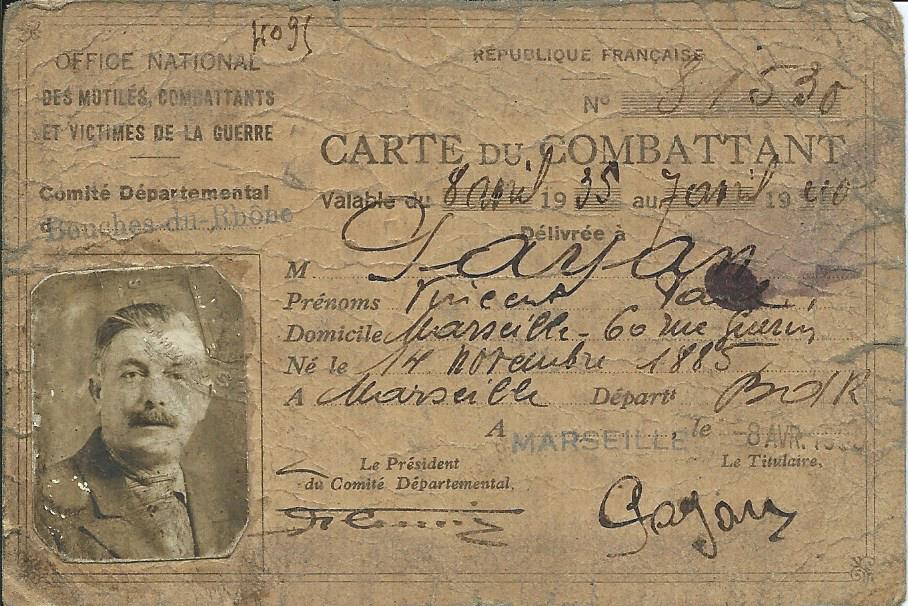 OFFICE NATIONAL
DES MUTILÉS, COMBATTANTS
ET VICTIMES DE LA GUERRE
Comité Départemental
d Bouches-du-Rhône
RÉPUBLIQUE FRANÇAISE
N° 81530
CARTE DU COMBATTANT
Valable du 8 avril 1935 au 7 avril 1940
Délivrée à
M
Prénoms Vincent
Domicile Marseille - 60 rue Guerin
Né le 14 novembre 1885
A Marseille Départt BdR
A MARSEILLE le -8 AVR.
Le Président
du Comité Départemental,
Le Titulaire,